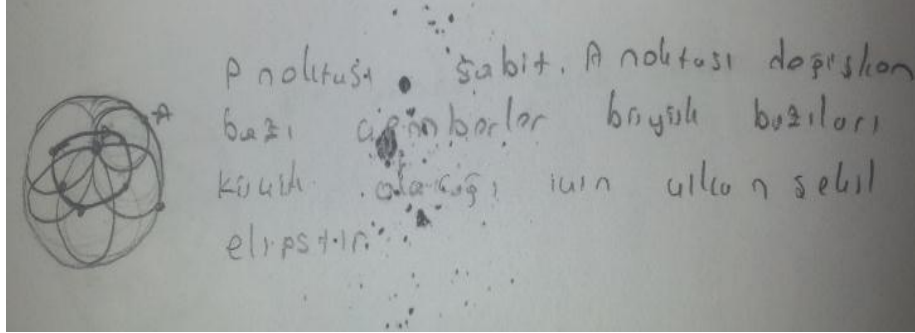 P noktası sabit. A noktası değişken
bazı çemberler büyük bazıları
küçük olacağı için çıkan şekil
elipstir.
A